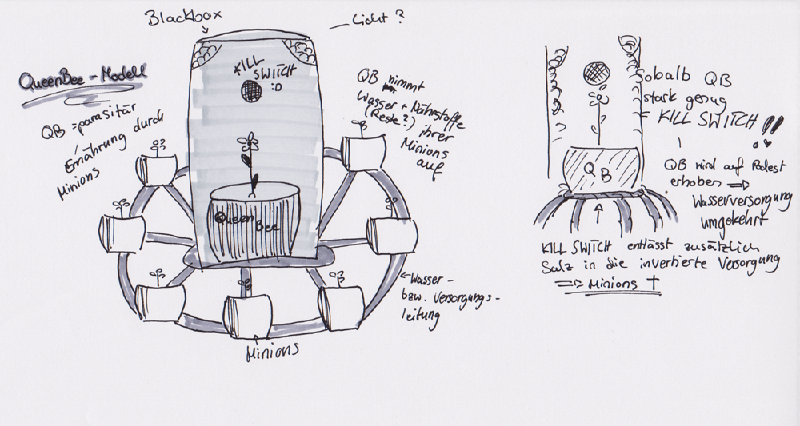 Blackbox
Licht?
QueenBee-Modell
QB = parasitär
Ernährung durch
Minions
KILL
SWITCH
:O
QB nimmt
Wasser + Nährstoffe
(Reste?) ihrer
Minions
auf
Queen Bee
Wasser-
bzw. Versorgungs-
leitung
Minions
sobalb QB
stark genug
= KILL SWITCH!!
QB
QB wird auf Podest
erhoben ⇒
Wasserversorgung
umgekehrt
KILL SWITCH entlässt zusätzlich
Salz in die invertierte Versorgung
⇒ Minions †